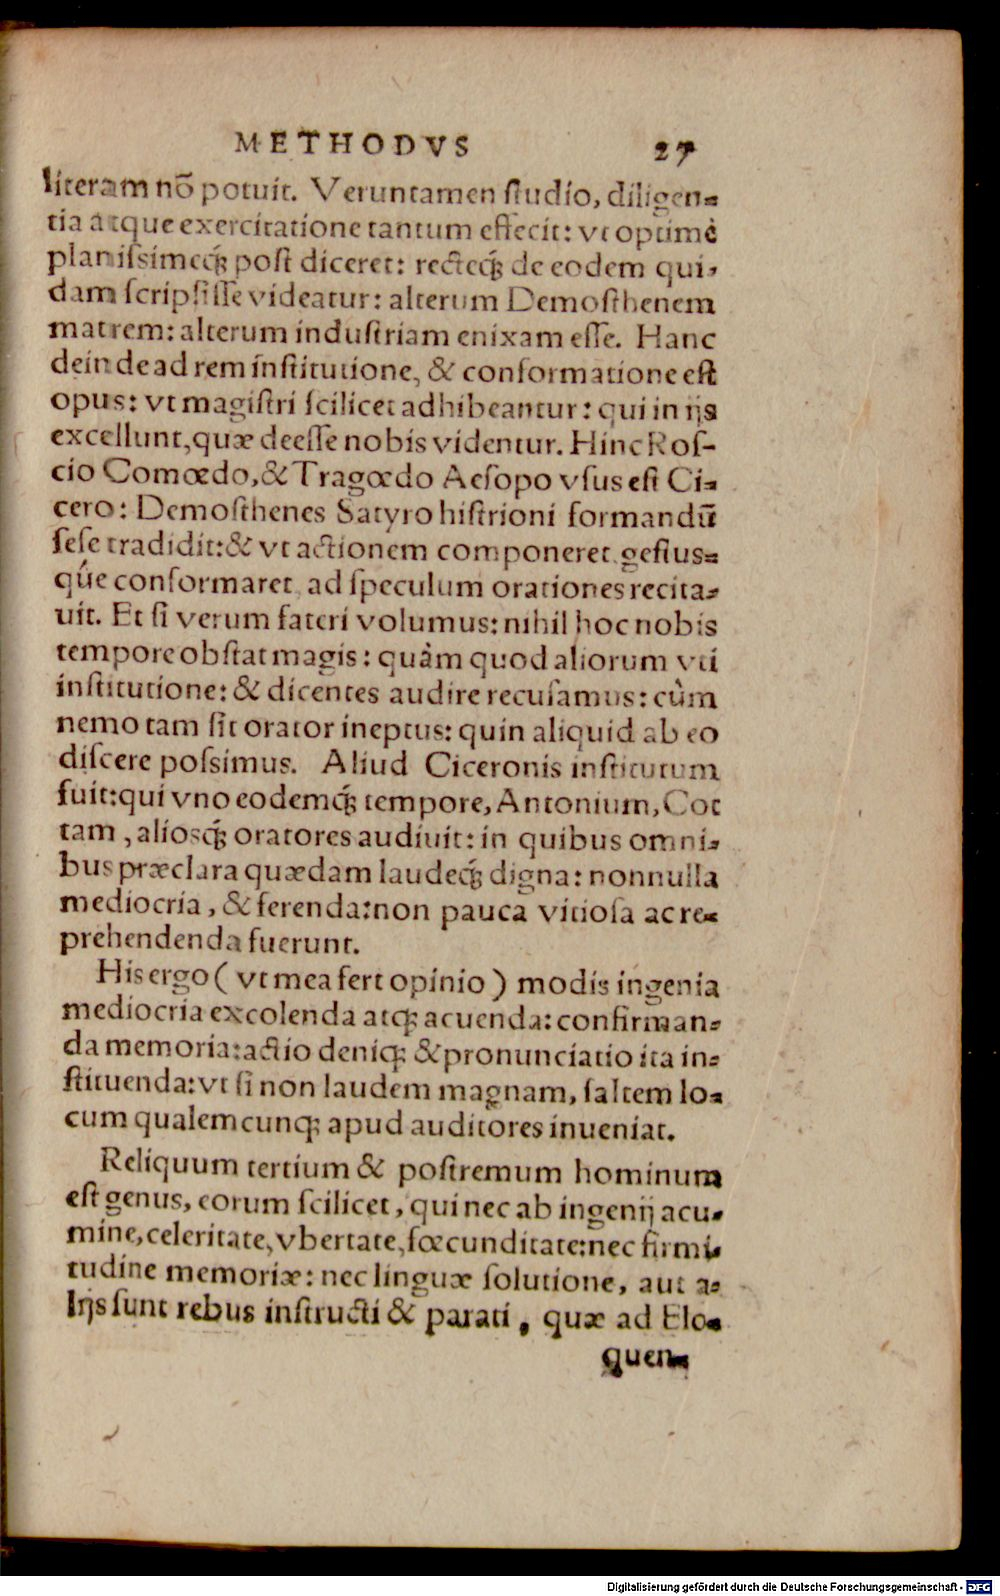 METHODVS 27
literam nõ potuit. Veruntamen ſtudio, diligen-
tia atque exercitatione tantum effecit: vt optimè
planiſsimeq́; poſt diceret: recteq́; de eodem qui-
dam ſcripſiſſe videatur: alterum Demoſthenem
matrem: alterum induſtriam enixam eſſe. Hanc
deinde ad rem inſtitutione, & conformatione eſt
opus: vt magiſtri ſcilicet adhibeantur: qui in ijs
excellunt, quæ deeſſe nobis videntur. Hinc Roſ-
cio Comœdo, & Tragœdo Aeſopo vſus eſt Ci-
cero: Demoſthenes Satyro hiſtrioni formandū
ſeſe tradidit: & vt actionem componeret geſtus-
q́ue conformaret, ad ſpeculum orationes recita-
uit. Et ſi verum fateri volumus: nihil hoc nobis
tempore obſtat magis: quàm quod aliorum vti
inſtitutione: & dicentes audire recuſamus: cùm
nemo tam ſit orator ineptus: quin aliquid ab eo
diſcere poſsimus. Aliud Ciceronis inſtitutum
fuit: qui vno eodemq́; tempore, Antonium, Cot
tam, alioſq́; oratores audiuit: in quibus omni-
bus præclara quædam laudeq́; digna: nonnulla
mediocria, & ferenda: non pauca vitioſa ac re-
prehendenda fuerunt.
His ergo (vt mea fert opinio) modis ingenia
mediocria excolenda atq; acuenda: confirman-
da memoria: actio deniq; & pronunciatio ita in-
ſtituenda: vt ſi non laudem magnam, ſaltem lo-
cum qualemcunq; apud auditores inueniat.
Reliquum tertium & poſtremum hominum
eſt genus, eorum ſcilicet, qui nec ab ingenij acu-
mine, celeritate, vbertate, fœcunditate: nec firmi-
tudine memoriæ: nec linguæ ſolutione, aut a-
lijs ſunt rebus inſtructi & parati, quæ ad Elo-
quen-
Digitalisierung gefördert durch die Deutsche Forschungsgemeinschaft - DFG